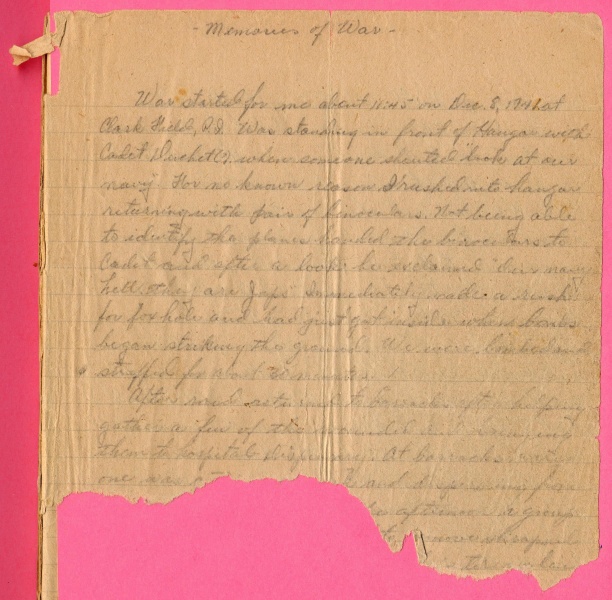 - Memories of War -
War started for me about 11:45 on Dec. 8, 1941 at
Clark Field, P.I. Was standing in front of Hangar with
Cadet when someone shouted "look at our
navy" For no known reason I rushed into hangar
returning with pair of binoculars. Not being able
to identify the planes handed the binoculars to
Cadet and after a look he exclaimed "Our navy
hell they are Japs" Immediately made a rush
for fox hole and had just got inside when bombs
began striking the ground. We were bombed and
strafed for
After raid to barracks after helping
gather a few of the wounded and
them to hospital dispensary. At barracks
one was and
afternoon a group